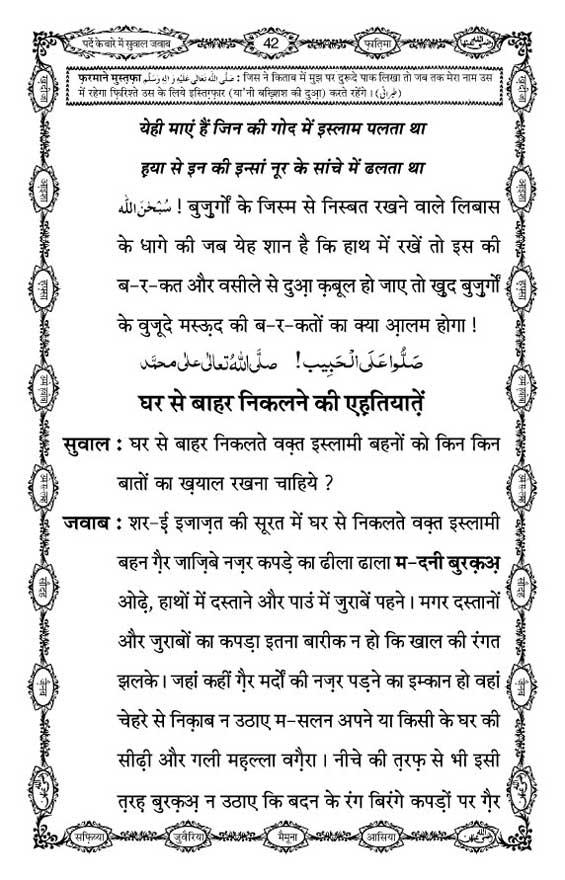 पर्दे के बारे में सुवाल जवाब
42
फ़ातिमा
फ़रमाने मुस्तफ़ा صَلَّى اللهُ تَعَالٰى عَلَيْهِ وَاٰلِهٖ وَسَلَّم : जिस ने किताब में मुझ पर दुरूदे पाक लिखा तो जब तक मेरा नाम उस
में रहेगा फ़िरिश्ते उस के लिये इस्तिग़्फ़ार (या'नी बख़्शिश की दुआ) करते रहेंगे । (طبرانی)
येही माएं हैं जिन की गोद में इस्लाम पलता था
ह़या से इन की इन्सां नूर के सांचे में ढलता था
سُبْحٰنَ اللّٰه ! बुज़ुर्गों के जिस्म से निस्बत रखने वाले लिबास
के धागे की जब येह शान है कि हाथ में रखें तो इस की
ब-र-कत और वसीले से दुआ़ क़बूल हो जाए तो ख़ुद बुज़ुर्गों
के वुजूदे मस्ऊ़द की ब-र-कतों का क्या आ़लम होगा !
صَلُّوْا عَلَى الْحَبِيْب! صلَّى اللهُ تعالٰى على محمَّد
घर से बाहर निकलने की एह़तियातें
सुवाल : घर से बाहर निकलते वक़्त इस्लामी बहनों को किन किन
बातों का ख़याल रखना चाहिये ?
जवाब : शर-ई इजाज़त की सूरत में घर से निकलते वक़्त इस्लामी
बहन ग़ैर जाज़िबे नज़र कपड़े का ढीला ढाला म-दनी बुरक़अ़
ओढ़े, हाथों में दस्ताने और पाउं में जुराबें पहने । मगर दस्तानों
और जुराबों का कपड़ा इतना बारीक न हो कि खाल की रंगत
झलके । जहां कहीं ग़ैर मर्दों की नज़र पड़ने का इम्कान हो वहां
चेहरे से निक़ाब न उठाए म-सलन अपने या किसी के घर की
सीढ़ी और गली मह़ल्ला वग़ैरा । नीचे की त़रफ़ से भी इसी
त़रह़ बुरक़अ़ न उठाए कि बदन के रंग बिरंगे कपड़ों पर ग़ैर
सफ़िय्या
जुवैरिया
मैमूना
आसिया